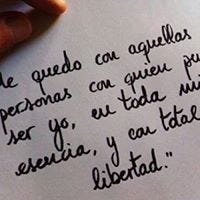 me quedo con aquellas
personas con quien pu
ser yo, en toda mi
esencia, y con total
libertad."